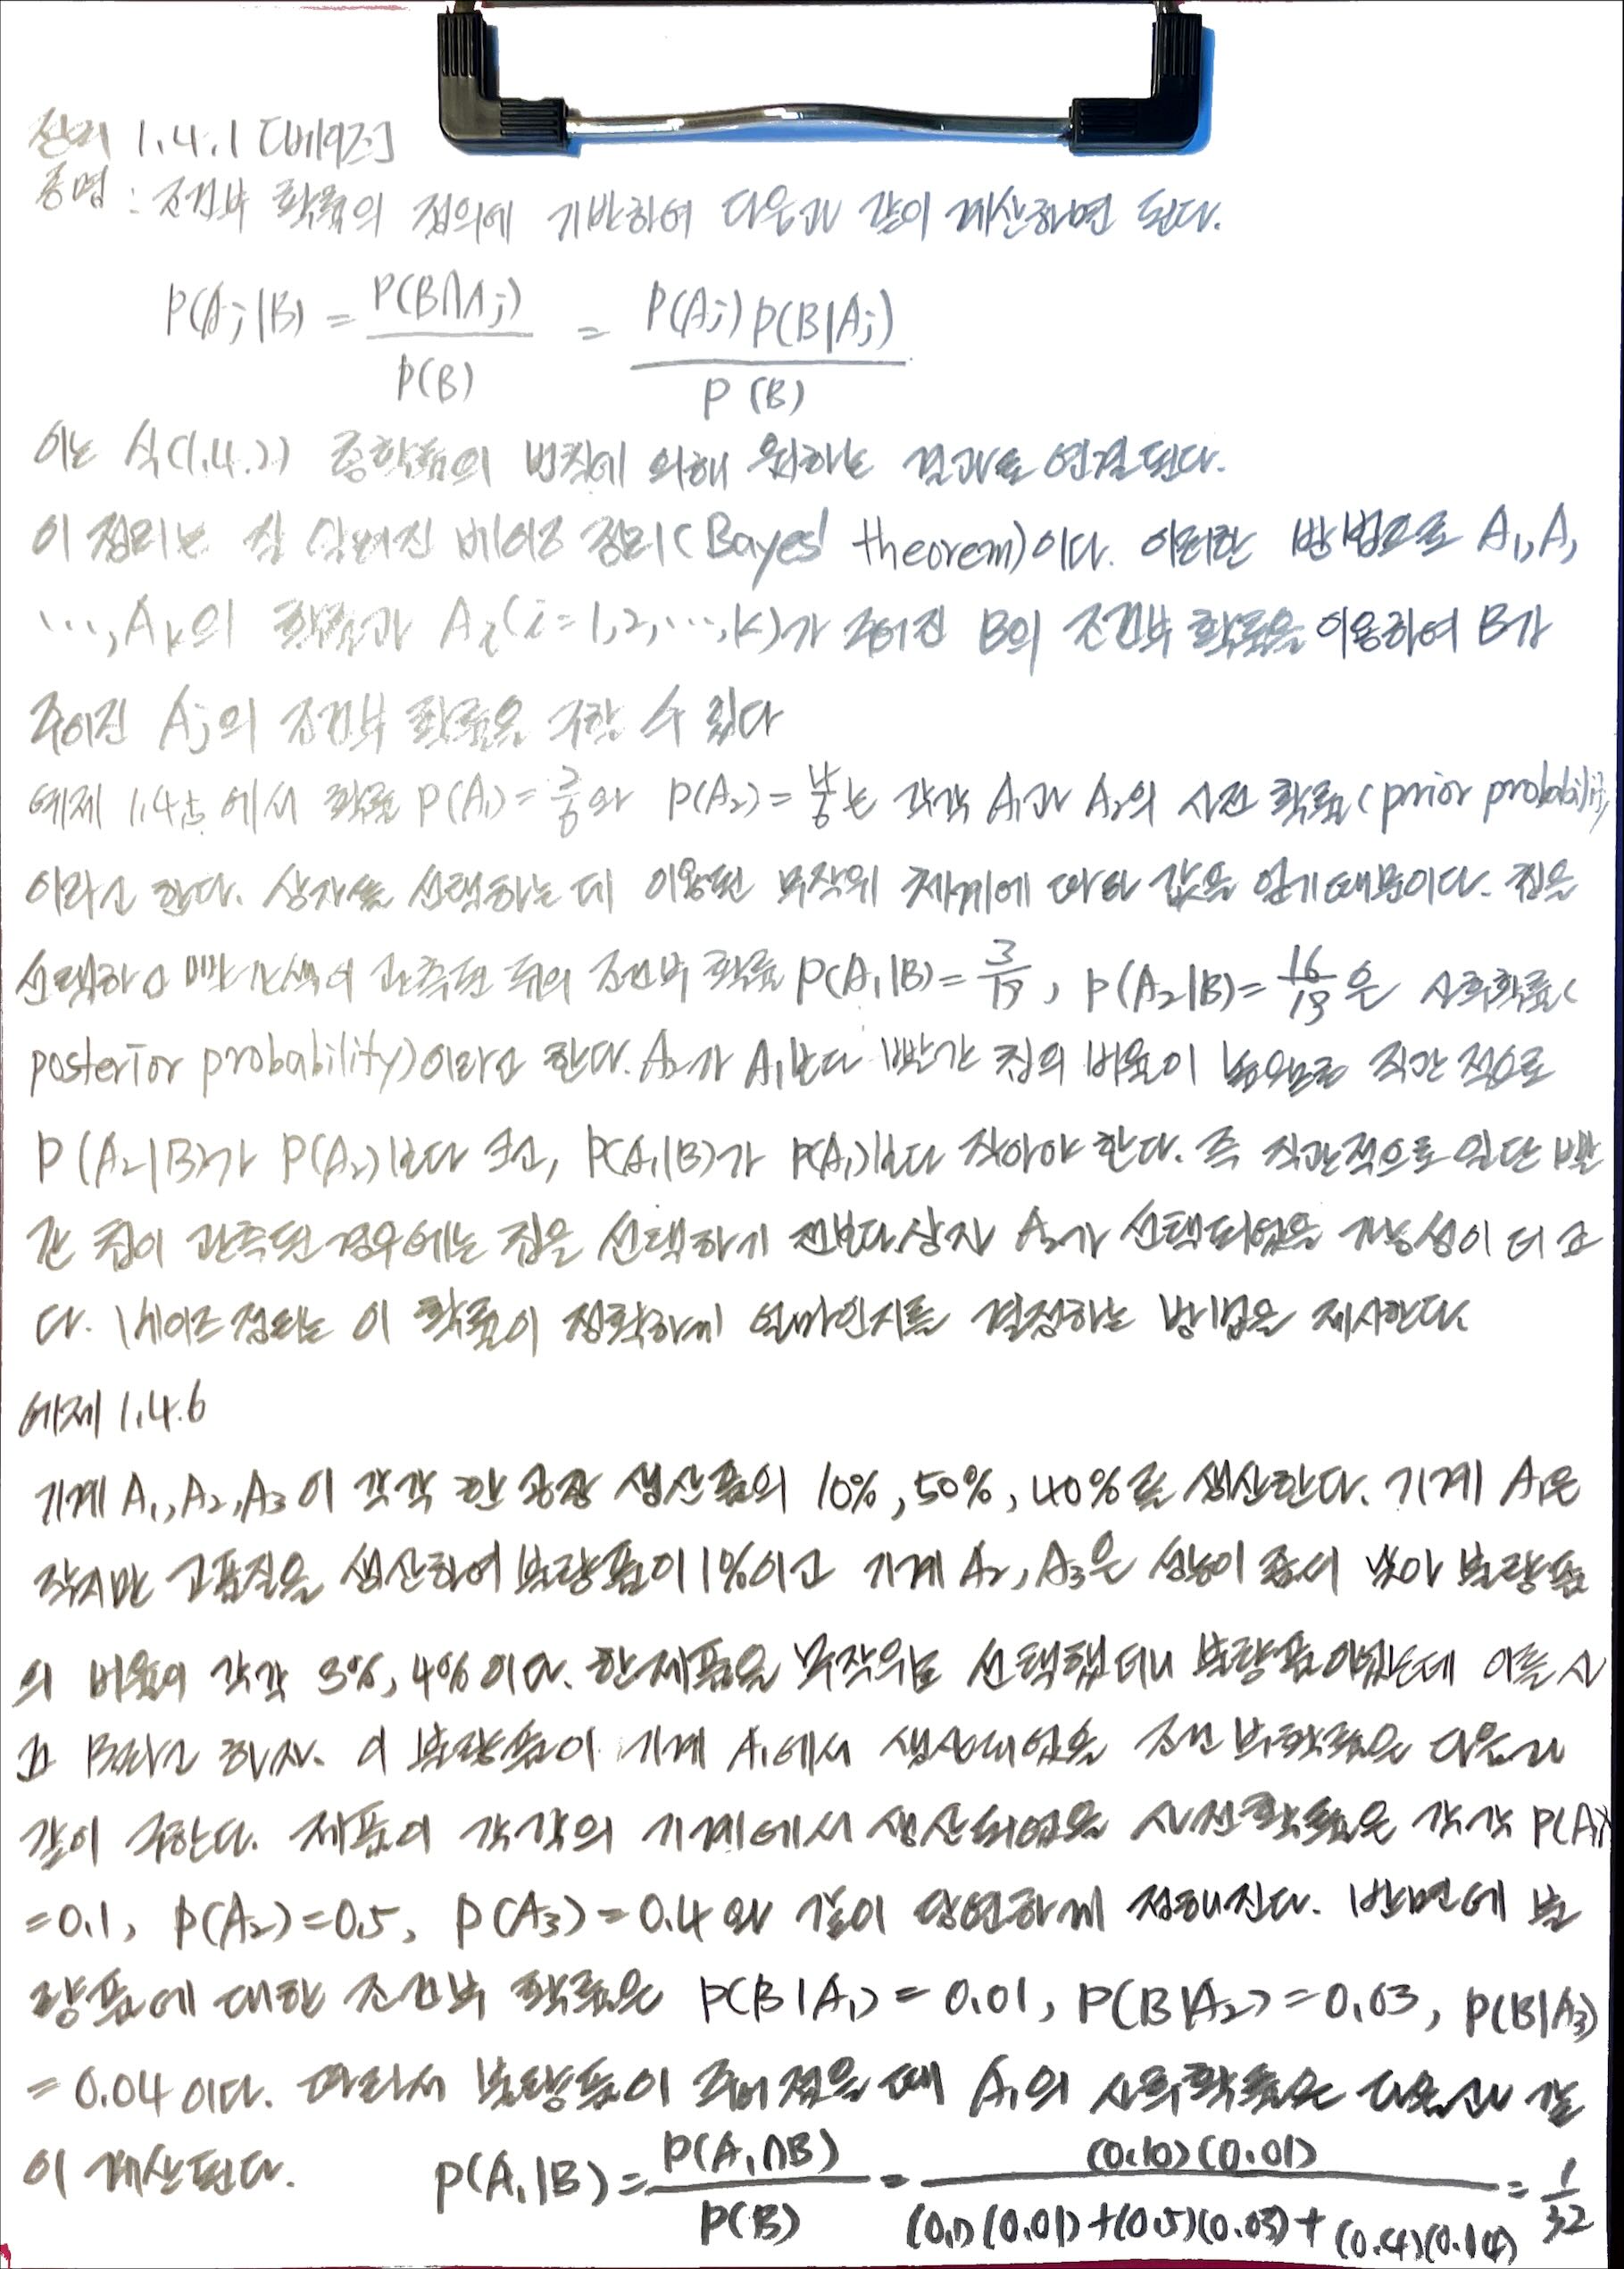 정리 1.4.1 [베이즈]
증명 : 조건부 확률의 정의에 기반하여 다음과 같이 계산하면 된다.
P(Aj|B) = P(B∩Aj) / P(B) = P(Aj) P(B|Aj) / P(B)
이는 식(1.4.2) 총확률의 법칙에 의해 원하는 결과로 연결된다.
이 정리는 잘 알려진 베이즈 정리(Bayes' theorem)이다. 이러한 방법으로 A₁, A₂
…, Ak의 확률과 Ai(i=1,2,…,k)가 주어진 B의 조건부 확률을 이용하여 B가
주어진 Aj의 조건부 확률을 구할 수 있다
예제 1.4.5에서 확률 P(A₁)=2/6와 P(A₂)=4/6는 각각 A₁과 A₂의 사전 확률(prior probability)
이라고 한다. 상자를 선택하는 데 이용된 무작위 체계에 따라 값을 얻기 때문이다. 칩을
선택하고 빨간색이 관측된 뒤의 조건부 확률 P(A₁|B)=3/19, P(A₂|B)=16/19은 사후확률(
posterior probability)이라고 한다. A₂가 A₁보다 빨간 칩의 비율이 높으므로 직관적으로
P(A₂|B)가 P(A₂)보다 크고, P(A₁|B)가 P(A₁)보다 작아야 한다. 즉 직관적으로 일단 빨
간 칩이 관측된 경우에는 칩을 선택하기 전보다 상자 A₂가 선택되었을 가능성이 더 크
다. 베이즈 정리는 이 확률이 정확하게 얼마인지를 결정하는 방법을 제시한다.
예제 1.4.6
기계 A₁, A₂, A₃이 각각 한 공장 생산품의 10%, 50%, 40%를 생산한다. 기계 A₁은
작지만 고품질을 생산하여 불량품이 1%이고 기계 A₂, A₃은 성능이 좀더 낮아 불량품
의 비율이 각각 3%, 4%이다. 한 제품을 무작위로 선택했더니 불량품이었는데 이를 사
건 B라고 하자. 이 불량품이 기계 A₁에서 생산되었을 조건부확률은 다음과
같이 구한다. 제품이 각각의 기계에서 생산되었을 사전확률은 각각 P(A₁)
=0.1, P(A₂)=0.5, P(A₃)=0.4와 같이 당연하게 정해진다. 반면에 불
량품에 대한 조건부 확률은 P(B|A₁)=0.01, P(B|A₂)=0.03, P(B|A₃)
=0.04이다. 따라서 불량품이 주어졌을 때 A₁의 사후확률은 다음과 같
이 계산된다. P(A₁|B)= P(A₁∩B) / P(B) = (0.10)(0.01) / (0.1)(0.01)+(0.5)(0.03)+(0.4)(0.04) = 1/32